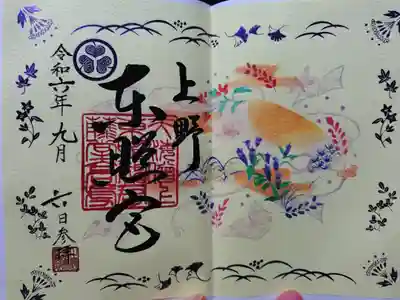 上野
東照宮
令和六年 九月
六日参